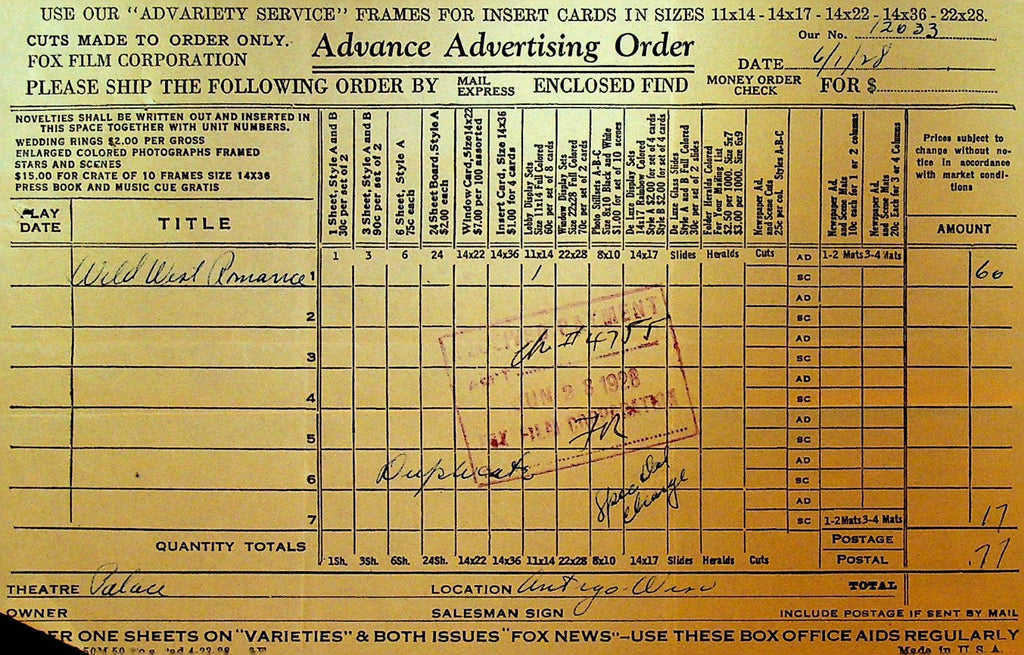 USE OUR "ADVARIETY SERVICE" FRAMES FOR INSERT CARDS IN SIZES 11x14 - 14x17 - 14x22 - 14x36 - 22x28.
CUTS MADE TO ORDER ONLY.
FOX FILM CORPORATION
Advance Advertising Order
Our No. 12033
DATE 6/1/28
PLEASE SHIP THE FOLLOWING ORDER BY MAIL EXPRESS ENCLOSED FIND MONEY ORDER CHECK FOR $
NOVELTIES SHALL BE WRITTEN OUT AND INSERTED IN
THIS SPACE TOGETHER WITH UNIT NUMBERS.
WEDDING RINGS $2.00 PER GROSS
ENLARGED COLORED PHOTOGRAPHS FRAMED
STARS AND SCENES
$15.00 FOR CRATE OF 10 FRAMES SIZE 14X36
PRESS BOOK AND MUSIC CUE GRATIS
PLAY DATE
TITLE
1 Sheet, Style A and B
30c per set of 2
3 Sheet, Style A and B
90c per set of 2
6 Sheet, Style A
75c each
24 Sheet Board, Style A
$2.00 each
Window Card, Size 14x22
$7.00 per 100 assorted
Insert Card, Size 14x36
$1.00 for 4 cards
Lobby Display Sets
Size 11x14 Full Colored
60c per set of 8 cards
Window Display Sets
Size 22x28 Full Colored
70c per set of 2 cards
Photo Stillsets A-B-C
Size 8x10 Black and White
$1.00 for set of 10 scenes
De Luxe Display Sets
14x17 Rainbow Colored
Style A $2.00 for set of 4 cards
Style B $2.00 for set of 4 cards
De Luxe Glass Slides
Style A and B Full Colored
30c per set of 2 slides
Folder Heralds Colored
For Your Mailing List
$2.50 per 1000. Size 5x7
$3.00 per 1000. Size 6x9
Newspaper Ad.
and Scene Cuts
25c per col. Styles A-B-C
Newspaper Ad.
and Scene Mats
10c each for 1 or 2 columns
Newspaper Ad.
and Scene Mats
20c Each for 3 or 4 Columns
Prices subject to
change without no-
tice in accordance
with market condi-
tions
AMOUNT
1 3 6 24 14x22 14x36 11x14 22x28 8x10 14x17 Slides Heralds Cuts AD 1-2 Mats 3-4 Mats
Wild West Romance 1 1 SC 60
AD
2 SC
AD
3 SC
AD
4 SC
AD
5 SC
AD
6 SC
AD
7 SC 1-2 Mats 3-4 Mats 17
Ch # 4755
JUN 28 1928
FOX FILM CORPORATION
Duplicate
Spec Del
charge
QUANTITY TOTALS
POSTAGE
1Sh. 3Sh. 6Sh. 24Sh. 14x22 14x36 11x14 22x28 8x10 14x17 Slides Heralds Cuts POSTAL .77
THEATRE Palace LOCATION Antigo Wisc TOTAL
OWNER SALESMAN SIGN INCLUDE POSTAGE IF SENT BY MAIL
ONE SHEETS ON "VARIETIES" & BOTH ISSUES "FOX NEWS"—USE THESE BOX OFFICE AIDS REGULARLY
Made in U.S.A.